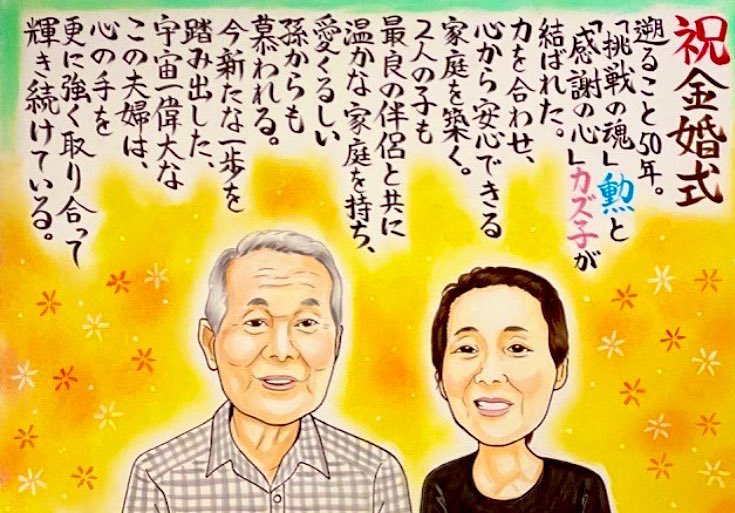 祝金婚式
遡ること50年。
「挑戦の魂」勲と
「感謝の心」カズ子が
結ばれた。
力を合わせ、
心から安心できる
家庭を築く。
2人の子も
最良の伴侶と共に
温かな家庭を持ち、
愛くるしい
孫からも
慕われる。
今新たな一歩を
踏み出した、
宇宙一偉大な
この夫婦は、
心の手を
更に強く取り合って
輝き続けている。